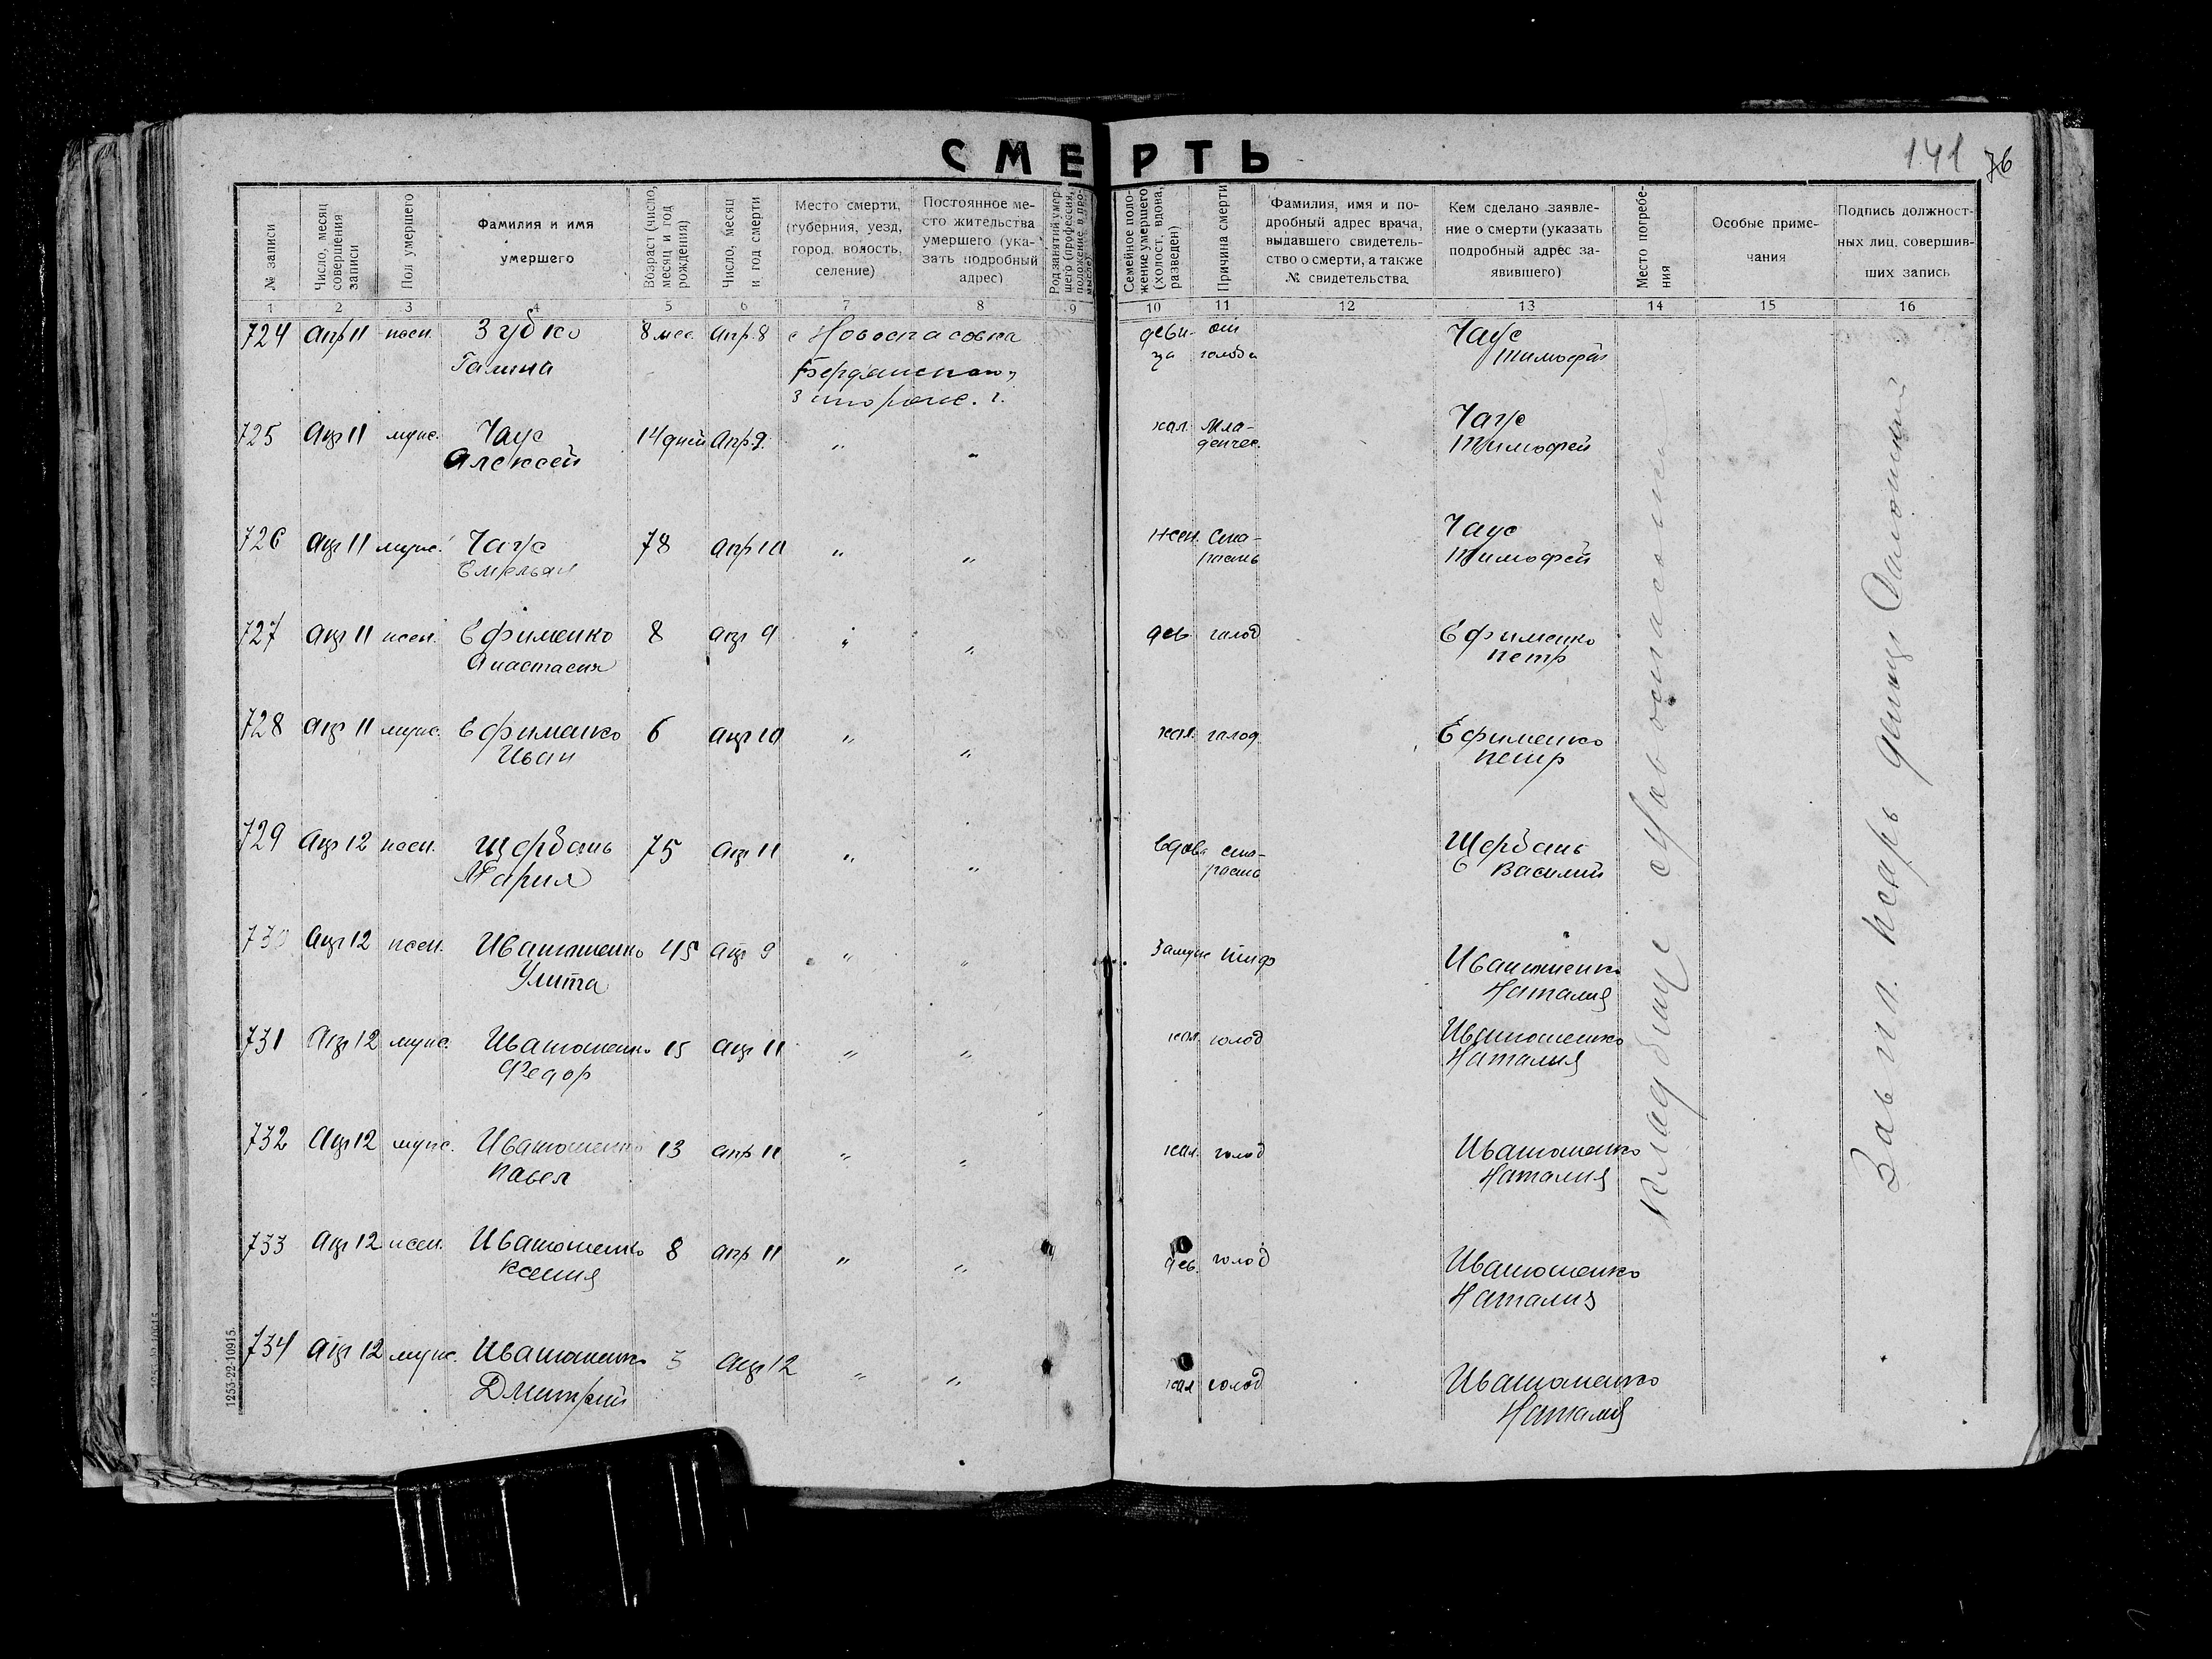 СМЕРТЬ
141 76
№ записи
Число, месяц совершения записи
Пол умершего
Фамилия и имя умершего
Возраст (число, месяц и год рождения)
Число, месяц и год смерти
Место смерти, (губерния, уезд, город, волость, селение)
Постоянное место жительства умершего (указать подробный адрес)
Род занятий умершего (профессия, положение в промысле)
Семейное положение умершего (холост, вдова, разведен)
Причина смерти
Фамилия, имя и подробный адрес врача, выдавшего свидетельство о смерти, а также № свидетельства
Кем сделано заявление о смерти (указать подробный адрес заявившего)
Место погребения
Особые примечания
Подпись должностных лиц, совершивших запись
1 2 3 4 5 6 7 8 9 10 11 12 13 14 15 16
724 Апр 11 жен. Зубко 8 мес. апр. 8 с Новоспасовка деви- от Чаус
Галина Бердянского ца голода Тимофей
725 Апр 11 муж. Чаус 14 дней Апр. 9 " " хол. Мла- Чаус
Алексей денчес. Тимофей
726 Апр 11 муж. Чаус 78 апр 10 " " жен. Ста- Чаус
Емельян рость Тимофей
727 Апр 11 жен. Ефименко 8 апр 9 " " дев. голод Ефименко
Анастасия Петр
728 Апр 11 муж. Ефименко 6 апр 10 " " хол. голод Ефименко
Иван Петр
729 Апр 12 жен. Щербань 75 апр 11 " " вдова ста- Щербань
Мария рость Василий
730 Апр 12 жен. Иватошенко 45 апр 9 " " Замуж тиф Иватошенко
Улита Наталия
731 Апр 12 муж. Иватошенко 15 апр 11 " " хол. голод Иватошенко
Федор Наталия
732 Апр 12 муж. Иватошенко 13 апр 11 " " хол. голод Иватошенко
Павел Наталия
733 Апр 12 жен. Иватошенко 8 апр 11 " " дев. голод Иватошенко
Ксения Наталия
734 Апр 12 муж. Иватошенко 5 апр 12 " " хол голод Иватошенко
Дмитрий Наталия
Кладбище с. Новоспасовка
1253-22-10915.